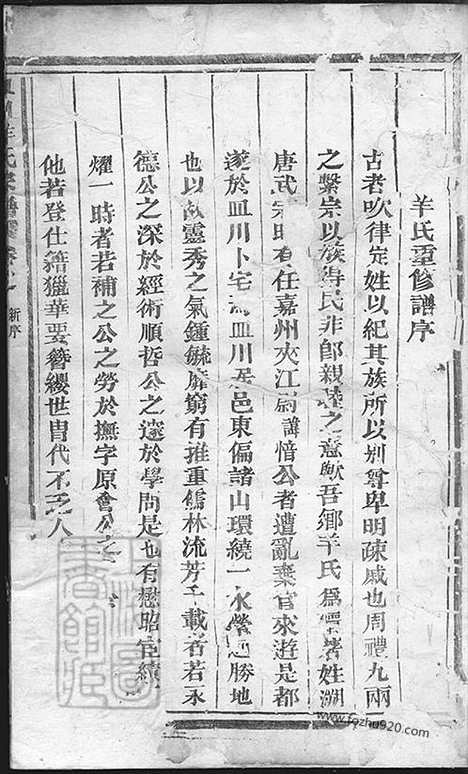 羊氏重修譜序
古者吹律定姓以紀其族所以别尊卑明疎戚也周禮九兩
之繫宗以族得民非卽親睦之意歟吾鄉羊氏爲著姓溯
唐武宗時有任嘉州夾江尉諱愔公者遭亂棄官來遊是都
遂於皿川卜宅焉皿川居邑東偏諸山環繞一水縈勝地
也以故靈秀之氣鍾毓靡窮有推重儒林流芳千載者若永
德公之深於經術順哲公之邃於學問是也有懋昭宦績
燿一時者若補之公之勞於撫字原會公之
他若登仕籍獵華要簪纓世胄代不乏人
新序
www.fozhu920.com